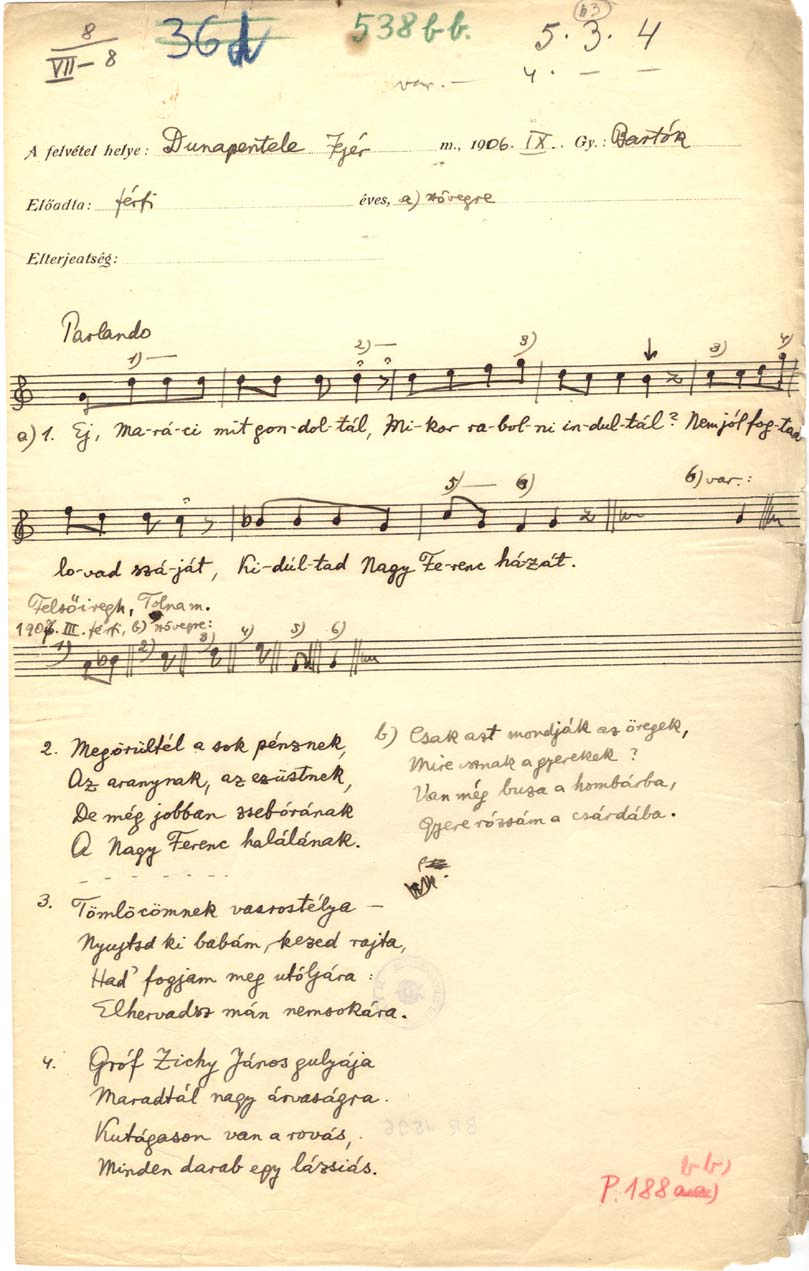 8
VII – 8
36
538 b b.
5. 3. 4
b3
var. —
4. — —
A felvétel helye: Dunapentele Fejér m., 1906. IX. Gy.: Bartók
Előadta: férfi éves, a) szövegre
Elterjedtség:
Parlando
1) — 2) — 3) 3) 4)
a) 1. Ej, Ma-rá-ci mit gon-dol-tál, Mi-kor ra-bol-ni in-dul-tál? Nem jól fog-tad
5) — 6) 6) var.:
lo-vad szá-ját, Ki-dúl-tad Nagy Fe-renc házát.
Felsőiregh, Tolnam.
1907. III. férfi, b) szövegre:
1) 2) 3) 4) 5) 6)
2. Megörültél a sok pénznek,
Az aranynak, az ezüstnek,
De még jobban zsebórának
A Nagy Ferenc halálának.
b) Csak azt mondják az öregek,
Mire isznak a gyerekek?
Van még buza a hombárba,
Gyere rózsám a csárdába.
3. Tömlöcömnek vasrostélya –
Nyujtsd ki babám, kezed rajta,
Had' fogjam meg utóljára:
Elhervadsz mán nemsokára.
4. Gróf Zichy János gulyája
Maradtál nagy árvaságra.
Kutágason van a rovás,
Minden darab egy lázsiás.
b b)
P. 188 aa)